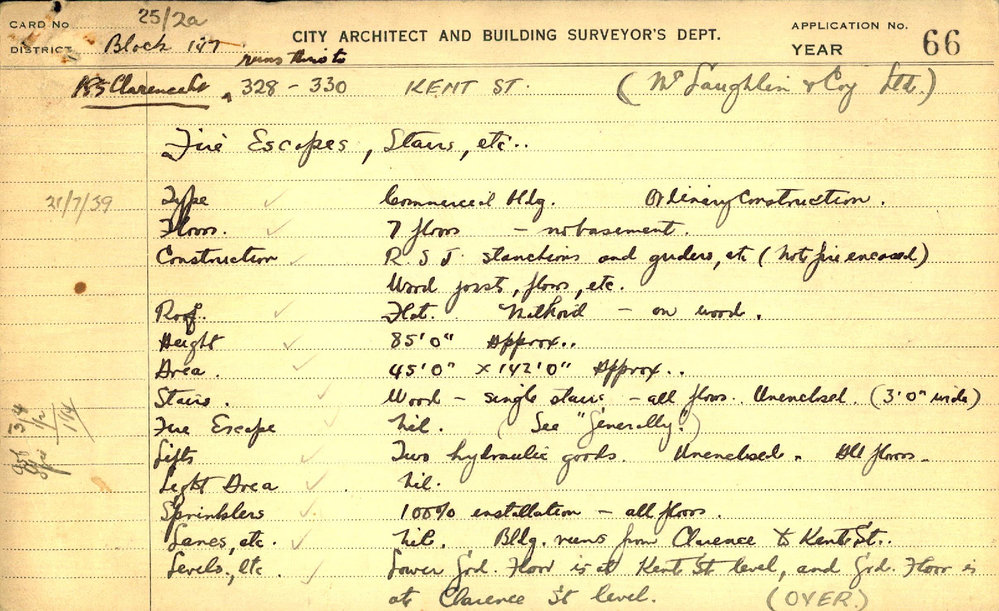 CARD No 25/2a CITY ARCHITECT AND BUILDING SURVEYOR'S DEPT. APPLICATION No.
DISTRICT Block 147 YEAR 66
runs thro to
185 Clarence St 328 - 330 KENT ST. (McLaughlin & Coy Ltd.)
Fire Escapes, Stairs, etc..
21/7/39 Type Commercial bldg. Ordinary Construction.
Floors. 7 floors - no basement.
Construction R.S.J. stanchions and girders, etc (not fire encased)
Wood joists, floors, etc.
Roof. Flat. Malthoid - on wood.
Height 85'0" Approx..
Area. 45'0" x 142'0" Approx..
Stairs. Wood - single stairs - all floors. Unenclosed. (3'0" wide)
Fire Escape Nil. (See "Generally.")
Lifts Two hydraulic goods. Unenclosed. All floors.
Light Area Nil.
Sprinklers 100% installation - all floors.
Lanes, etc. Nil. Bldg. runs from Clarence to Kent St..
Levels, etc Lower Grd. Floor is at Kent St level, and Grd. Floor is
at Clarence St level. (OVER.)